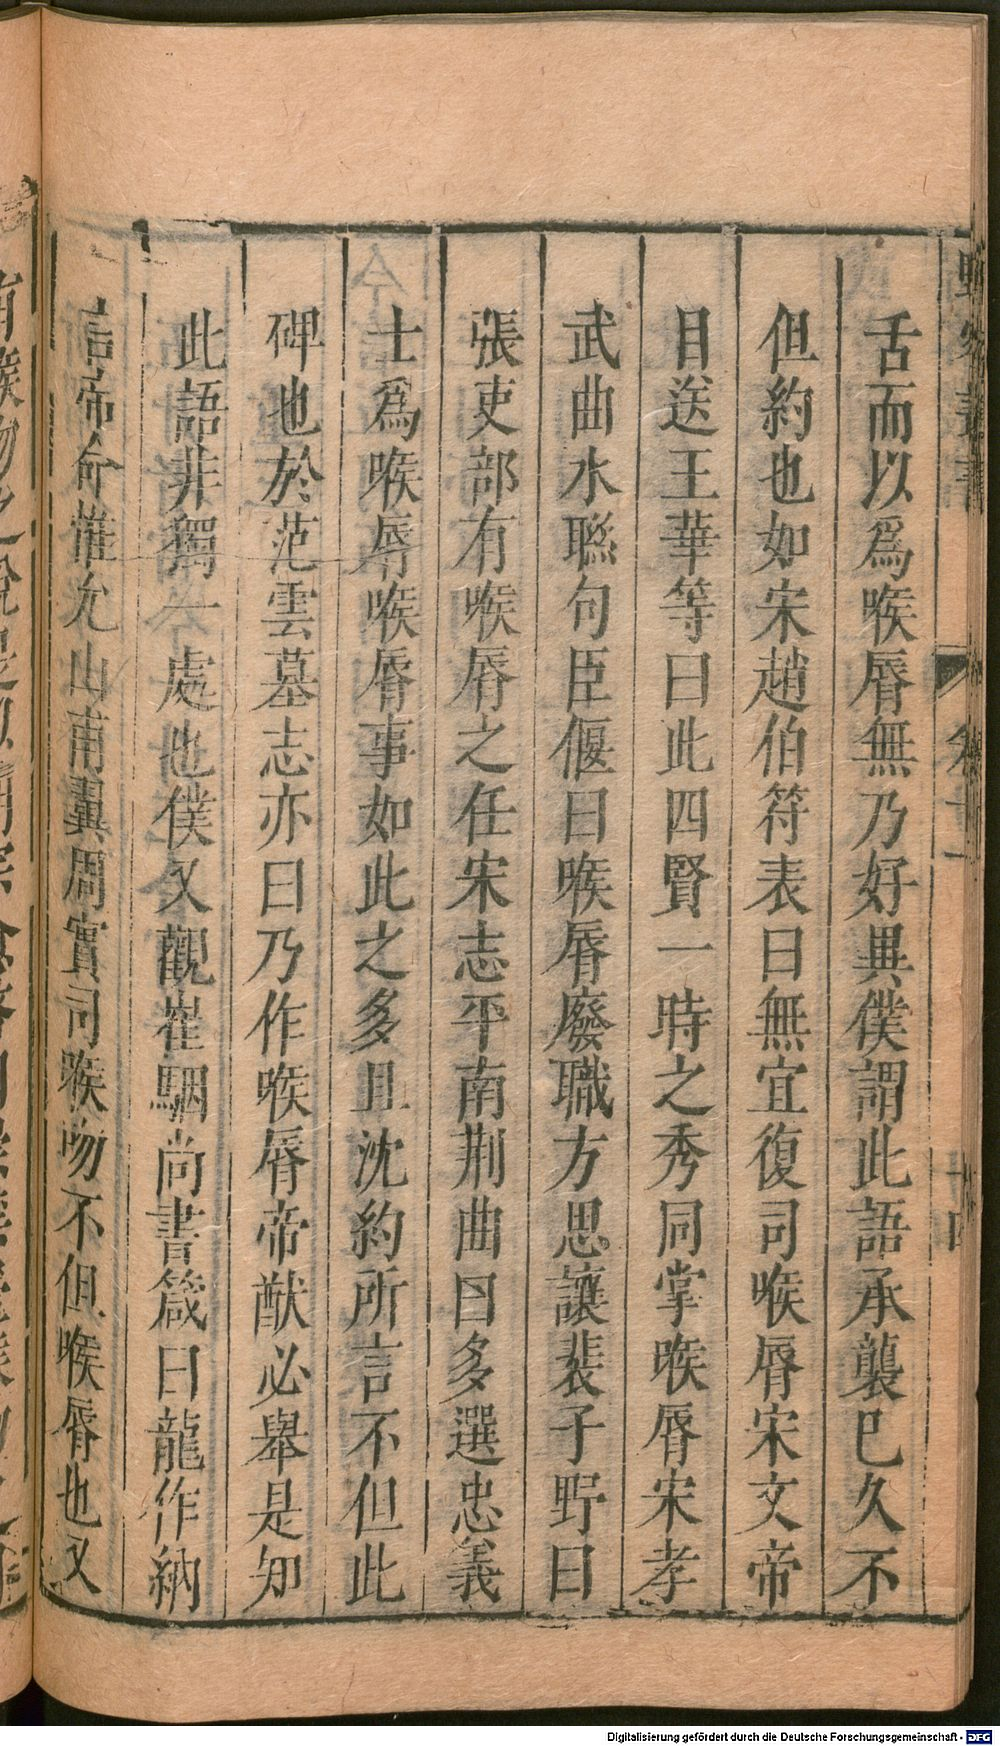 舌而以爲喉脣無乃好異僕謂此語承襲已久不
但約也如宋趙伯符表曰無宜復司喉脣宋文帝
目送王華等曰此四賢一時之秀同掌喉脣宋孝
武曲水聮句臣偃曰喉脣廢職方思讓裴子野曰
張吏部有喉脣之任宋志平南荆曲曰多選忠義
士爲喉脣喉脣事如此之多且沈約所言不但此
碑也於范雲墓志亦曰乃作喉脣帝猷必舉是知
此語非獨一處也僕又觀崔駰尚書箴曰龍作納
言帝命惟允山甫翼周實司喉吻不但喉脣也又
Digitalisierung gefördert durch die Deutsche Forschungsgemeinschaft - DFG